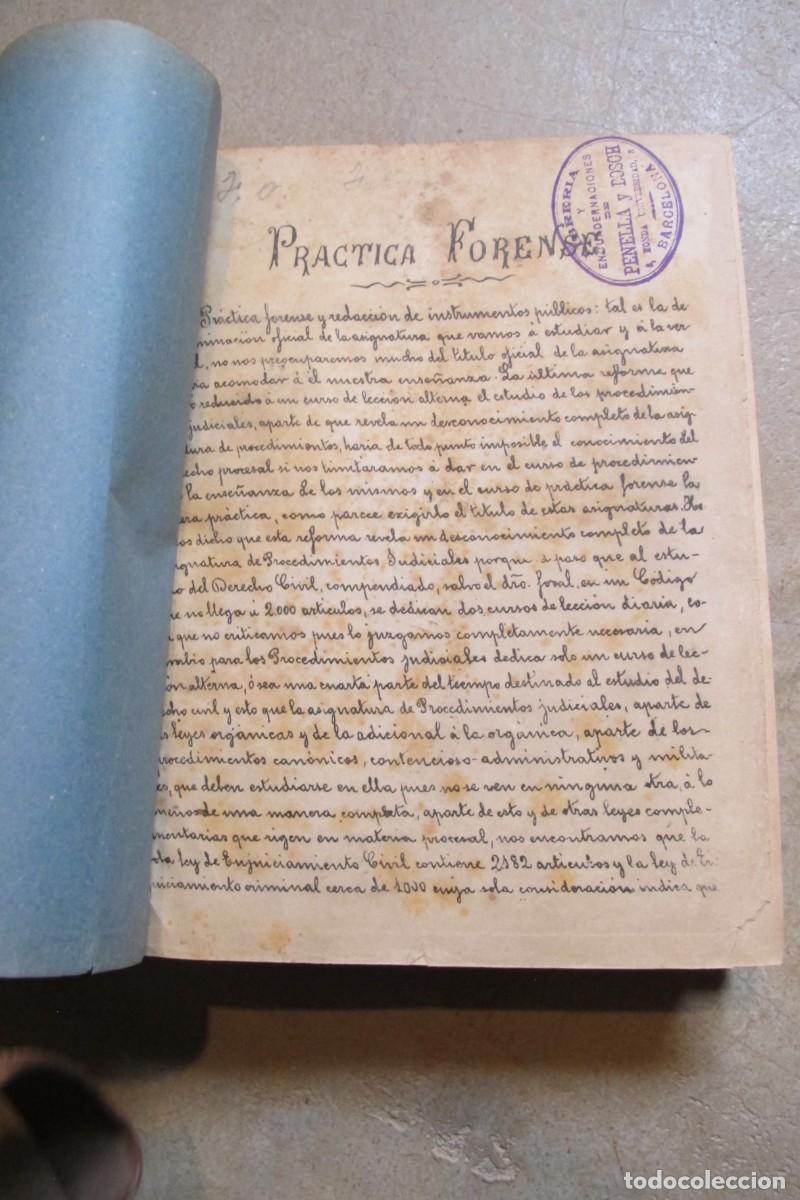 LIBRERIA
Y
ENCUADERNACIONES
DE
PENELLA Y BOSCH
RONDA UNIVERSIDAD,
BARCELONA
PRACTICA FORENSE
Práctica forense y redacción de instrumentos públicos: tal es la de
minación oficial de la asignatura que vamos á estudiar y á la ver
d, no nos preocuparemos mucho del titulo oficial de la asignatura
ra acomodar á él nuestra enseñanza. La última reforma que
o reducido á un curso de lección alterna el estudio de los procedimien
judiciales, aparte de que revela un desconocimiento completo de la asig
tura de procedimientos, haria de todo punto imposible el conocimiento del
echo procesal si nos limitáramos á dar en el curso de procedimien
la enseñanza de los mismos y en el curso de práctica forense la
era práctica, como parece exigirlo el titulo de estas asignaturas. He
os dicho que esta reforma revela un desconocimiento completo de la
ignatura de Procedimientos Judiciales porque á paso que al estu
o del Derecho Civil, compendiado, salvo el dro. foral, en un Código
e no llega á 2.000 articulos, se dedican dos cursos de lección diaria, co
que no criticamos pues lo juzgamos completamente necesaria, en
mbio para los Procedimientos judiciales dedica solo un curso de lec-
ón alterna, ó sea una cuarta parte del tiempo destinado al estudio del de
cho civil y esto que la asignatura de Procedimientos judiciales, aparte de
s leyes orgánicas y de la adicional á la orgánica, aparte de los
procedimientos canónicos, contencioso-administrativos y milita
es, que deben estudiarse en ella pues no se ven en ninguna otra, á lo
menos de una manera completa, aparte de esto y de otras leyes comple-
mentarias que rigen en materia procesal, nos encontramos que la
la ley de Enjuiciamiento Civil contiene 2182 articulos y la ley de En
juiciamiento criminal cerca de 1000 cuya sola consideración indica que
todocoleccion